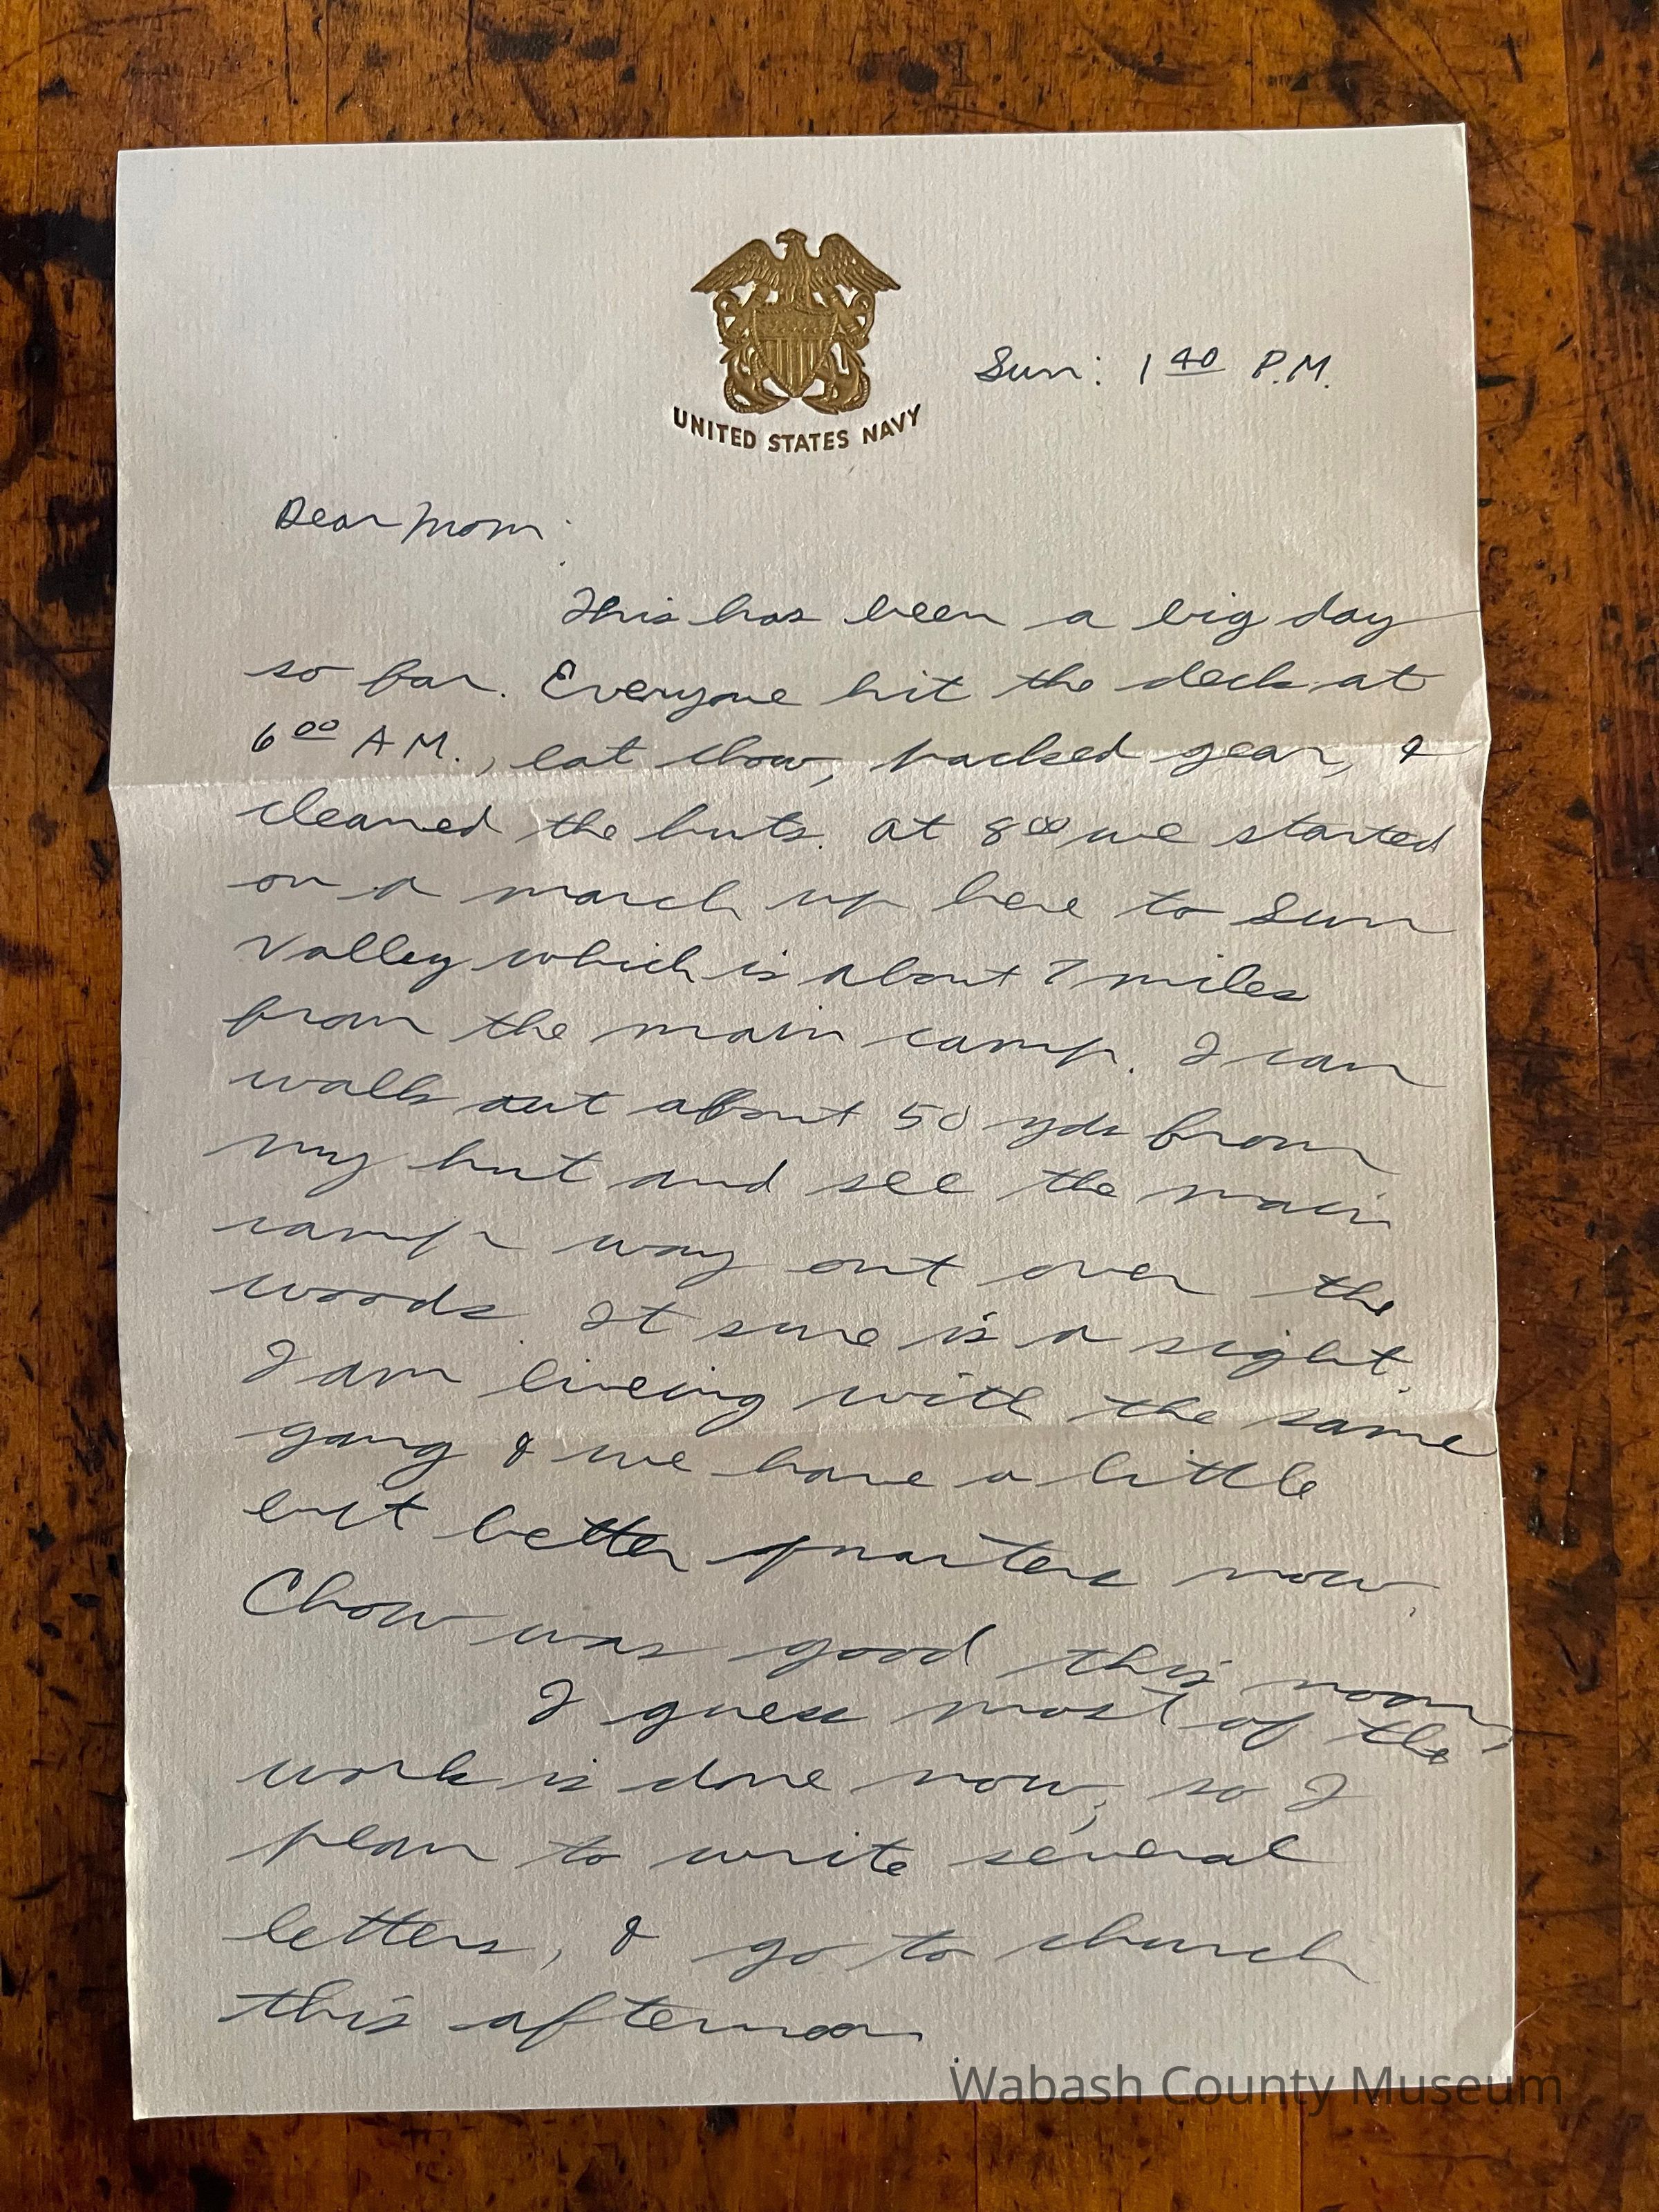 UNITED STATES NAVY
Sun: 1 40 P.M.
Dear Mom:
This has been a big day
so far. Everyone hit the deck at
6 00 A.M., eat chow, packed gear, &
cleaned the huts. At 8 00 we started
on a march up here to Sun
Valley which is about 7 miles
from the main camp. I can
walk out about 50 yds from
my hut and see the main
camp way out over the
woods. It sure is a sight.
I am liveing with the same
gang & we have a little
bit better quarters now.
Chow was good this noon.
I guess most of the
work is done now, so I
plan to write several
letters, & go to church
this afternoon.
Wabash County Museum